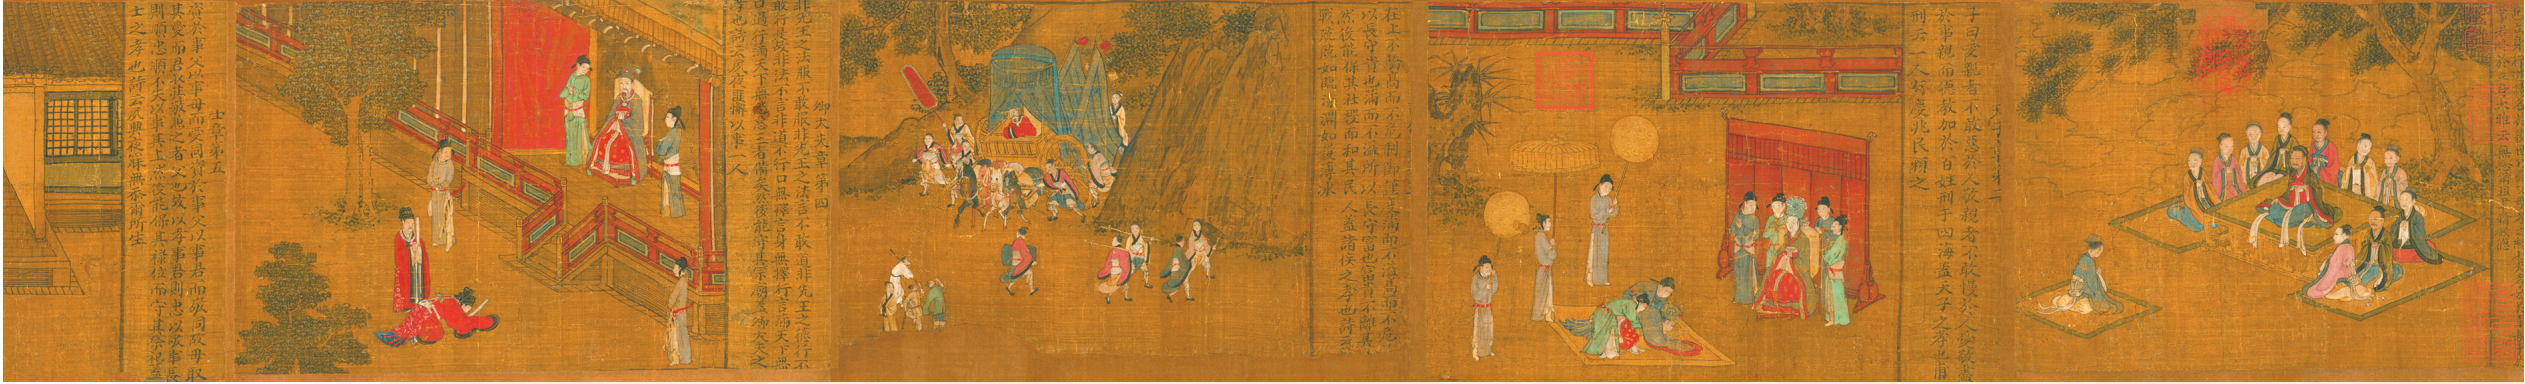 於立身大雅云無念爾祖聿脩厥德
天子章第二
子曰愛親者不敢惡於人敬親者不敢慢於人愛敬盡
於事親而德教加於百姓刑于四海蓋天子之孝也甫
刑云一人有慶兆民賴之
在上不驕高而不危制節謹度滿而不溢高而不危
以長守貴也滿而不溢所以長守富也富貴不離其
然後能保其社稷而和其民人蓋諸侯之孝也詩云
戰戰兢兢如臨深淵如履薄冰
卿大夫章第四
非先王之法服不敢服非先王之法言不敢道非先王之德行不
敢行是故非法不言非道不行口無擇言身無擇行言滿天下無
口過行滿天下無怨惡三者備矣然後能守其宗廟蓋卿大夫之
孝也詩云夙夜匪懈以事一人
士章第五
資於事父以事母而愛同資於事父以事君而敬同故母取
其愛而君取其敬兼之者父也故以孝事君則忠以敬事長
則順忠順不失以事其上然後能保其祿位而守其祭祀蓋
士之孝也詩云夙興夜寐無忝爾所生